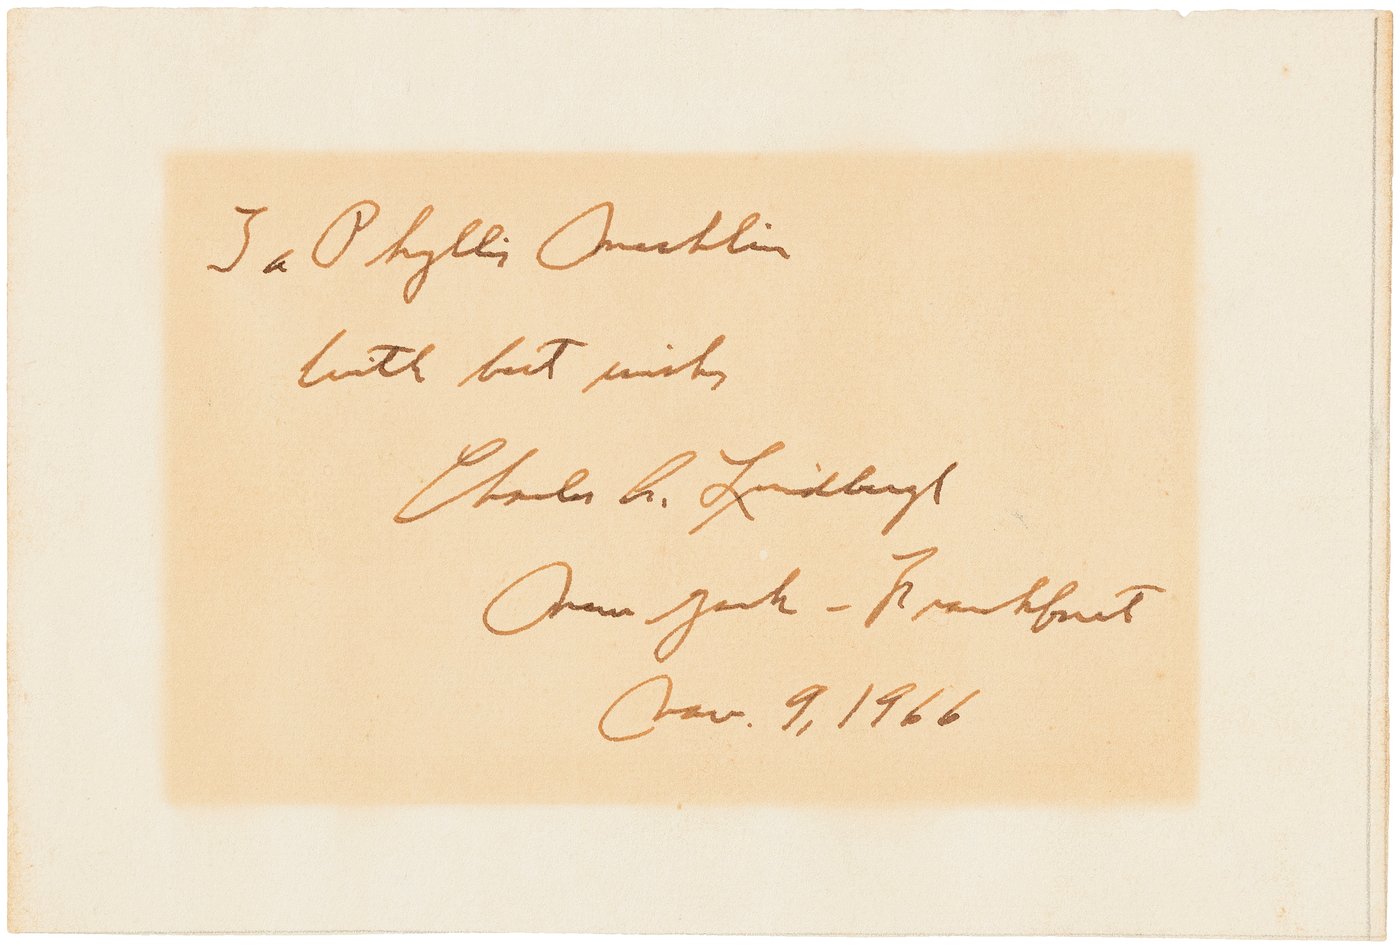 To Phyllis
with best wishes
Charles A. Lindbergh
New York – Frankfurt
Nov. 9, 1966